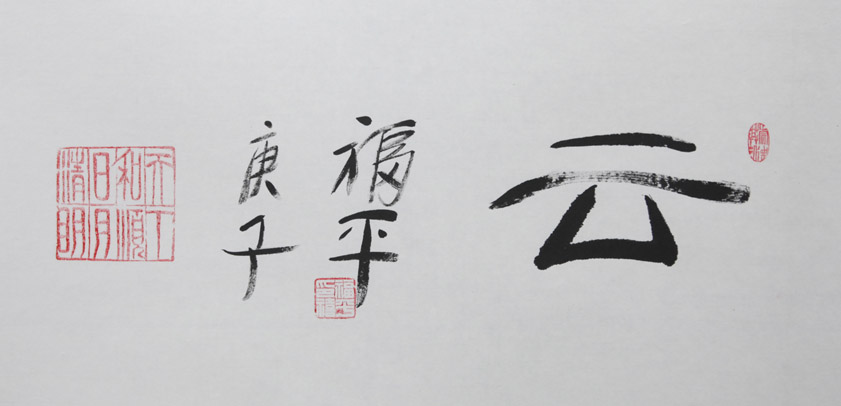 云
福平
庚子
天下
和順
日月
清明